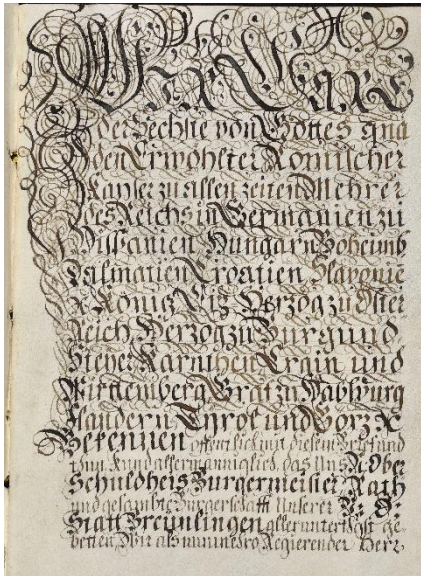 Wir Carl
der Sechste von Gottes gna
den Erwöhlter Römischer
Kayser zu allen zeiten Mehrer
des Reichs in Germanien zu
Hispanien Hungarn Boheimb
Dalmatien Croatien Slavonie
ꝛc König Herzog zu Öster
Reich Herzog zu Burgund
Steyer Kärnthen Crain und
Wirttemberg Graf zu Habspurg
Flandern Tyrol und Görz ꝛc
Bekennen offentlich mit diesem Brief und
thun kund allermänniglich, das Uns N: Ober
Schuldheis Burgermeister Rath
und gesambte Burgerschafft Unserer V: Ö:
Statt Breunlingen allerunterthgst ge
betten, Wir als nunmehro Regierender Herr